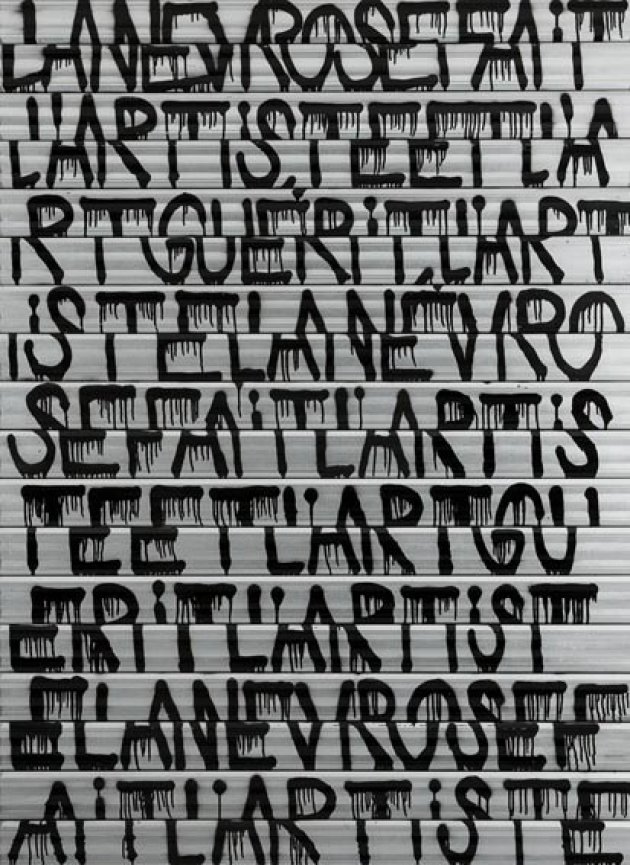 LANEVROSEFAiT
L'ARTiSTEETL'A
RTGUÉRiTL'ART
iSTELANÉVRO
SEFAiTL'ARTiS
TEETL'ARTGU
ERiTL'ARTiST
ELANEVROSEF
AiTL'ARTiSTE